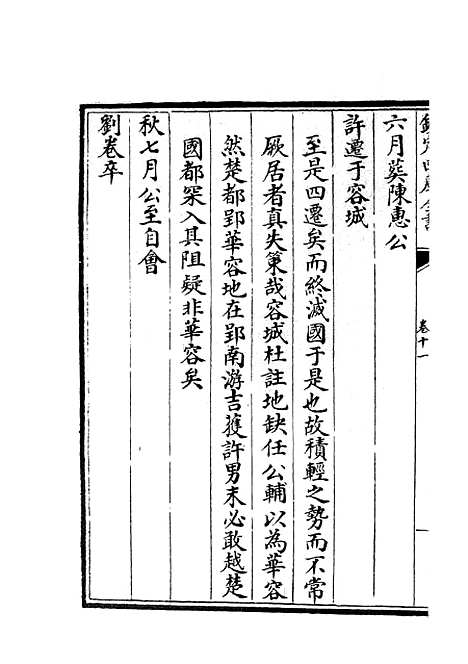 六月葬陳惠公
許遷于容城
至是四遷矣而終滅國于是也故積輕之勢而不常
厥居者真失策哉容城杜註地缺任公輔以為華容
然楚都郢華容地在郢南游吉獲許男未必敢越楚
國都深入其阻疑非華容矣
秋七月公至自會
劉卷卒
卷十一